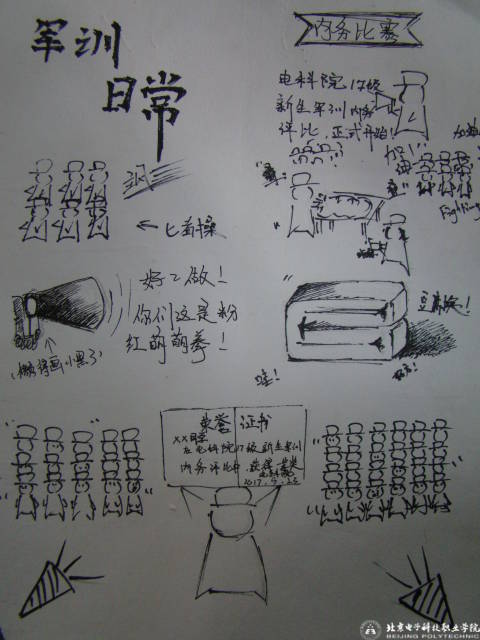 军训
日常
内务比赛
电科院17级
新生军训内务
评比,正式开始!
加油
加油!
Fighting
← 匕首操
好好做!
你们这是粉
红萌萌拳!
豆腐块!
哇!
荣誉证书
XX同学
在电科院17级新生军训
内务评比中
2017.9.26
北京电子科技职业学院
BEIJING POLYTECHNIC